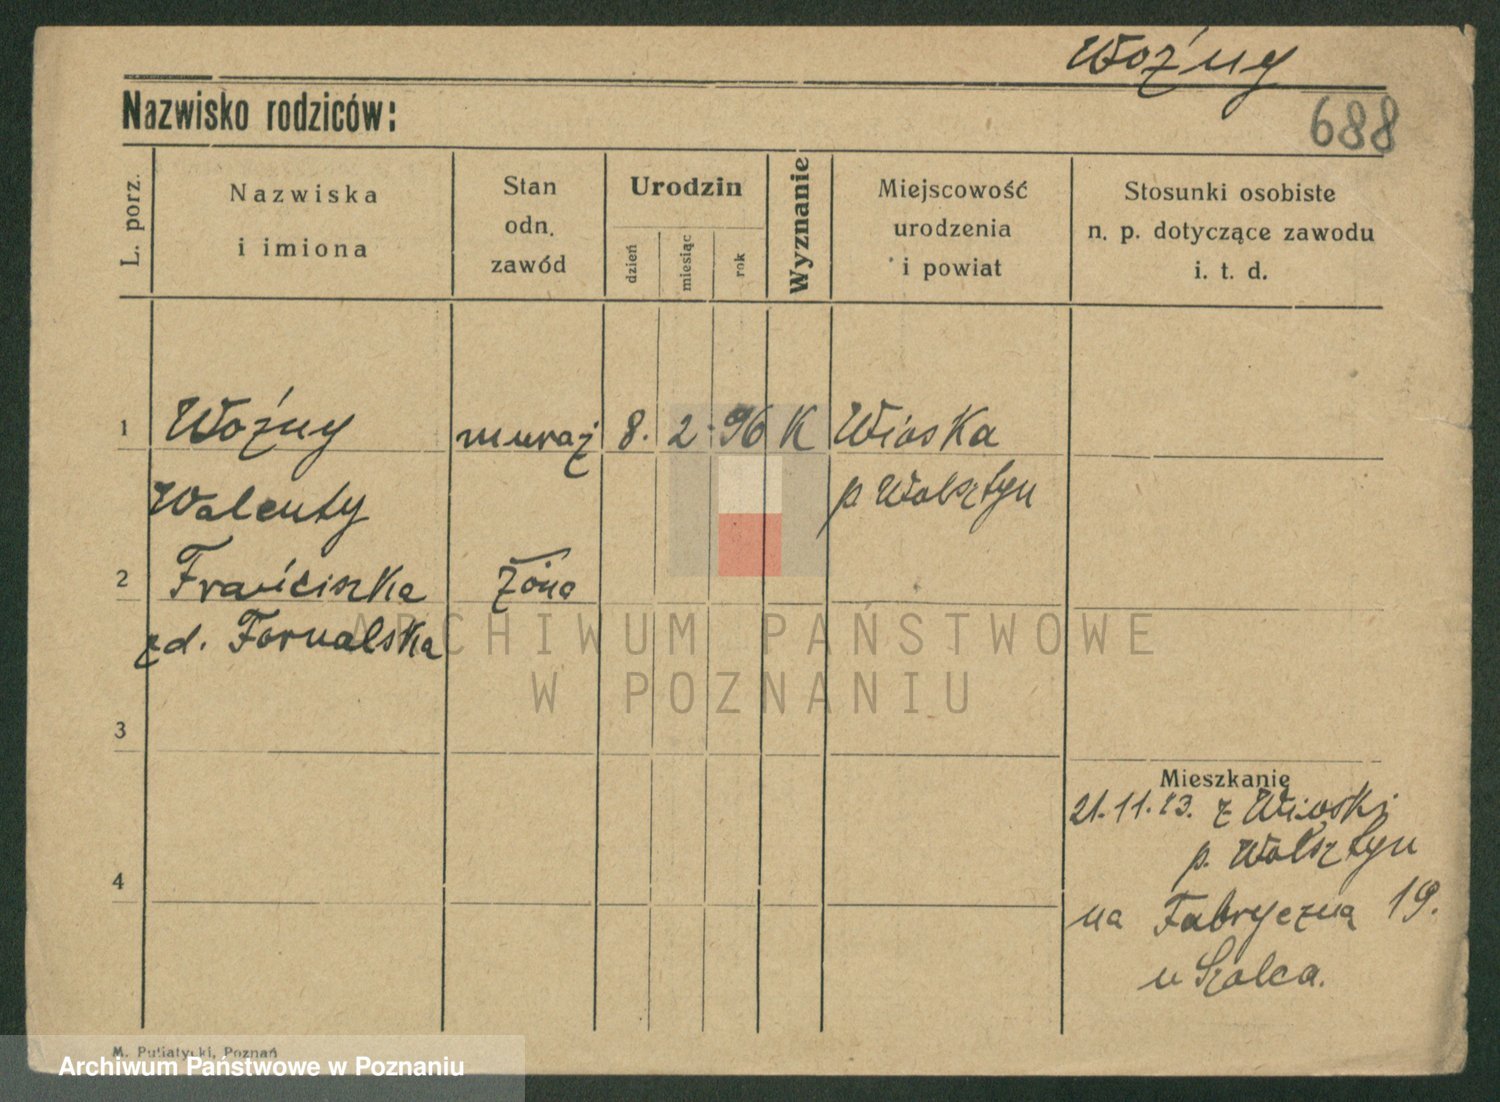 Woźny
Nazwisko rodziców:
688
L. porz.
Nazwiska
i imiona
Stan
odn.
zawód
Urodzin
dzień
miesiąc
rok
Wyznanie
Miejscowość
urodzenia
i powiat
Stosunki osobiste
n. p. dotyczące zawodu
i. t. d.
1 Woźny muraż 8. 2. 96 K Wioska
Walenty p Wolsztyn
2 Franciszka żona
zd. Fornalska
ARCHIWUM PAŃSTWOWE
W POZNANIU
3
Mieszkanie
21.11.23. z Wioski
p. Wolsztyn
4
na Fabryczną 19.
u Szolca.
M. Putiatycki, Poznań
Archiwum Państwowe w Poznaniu